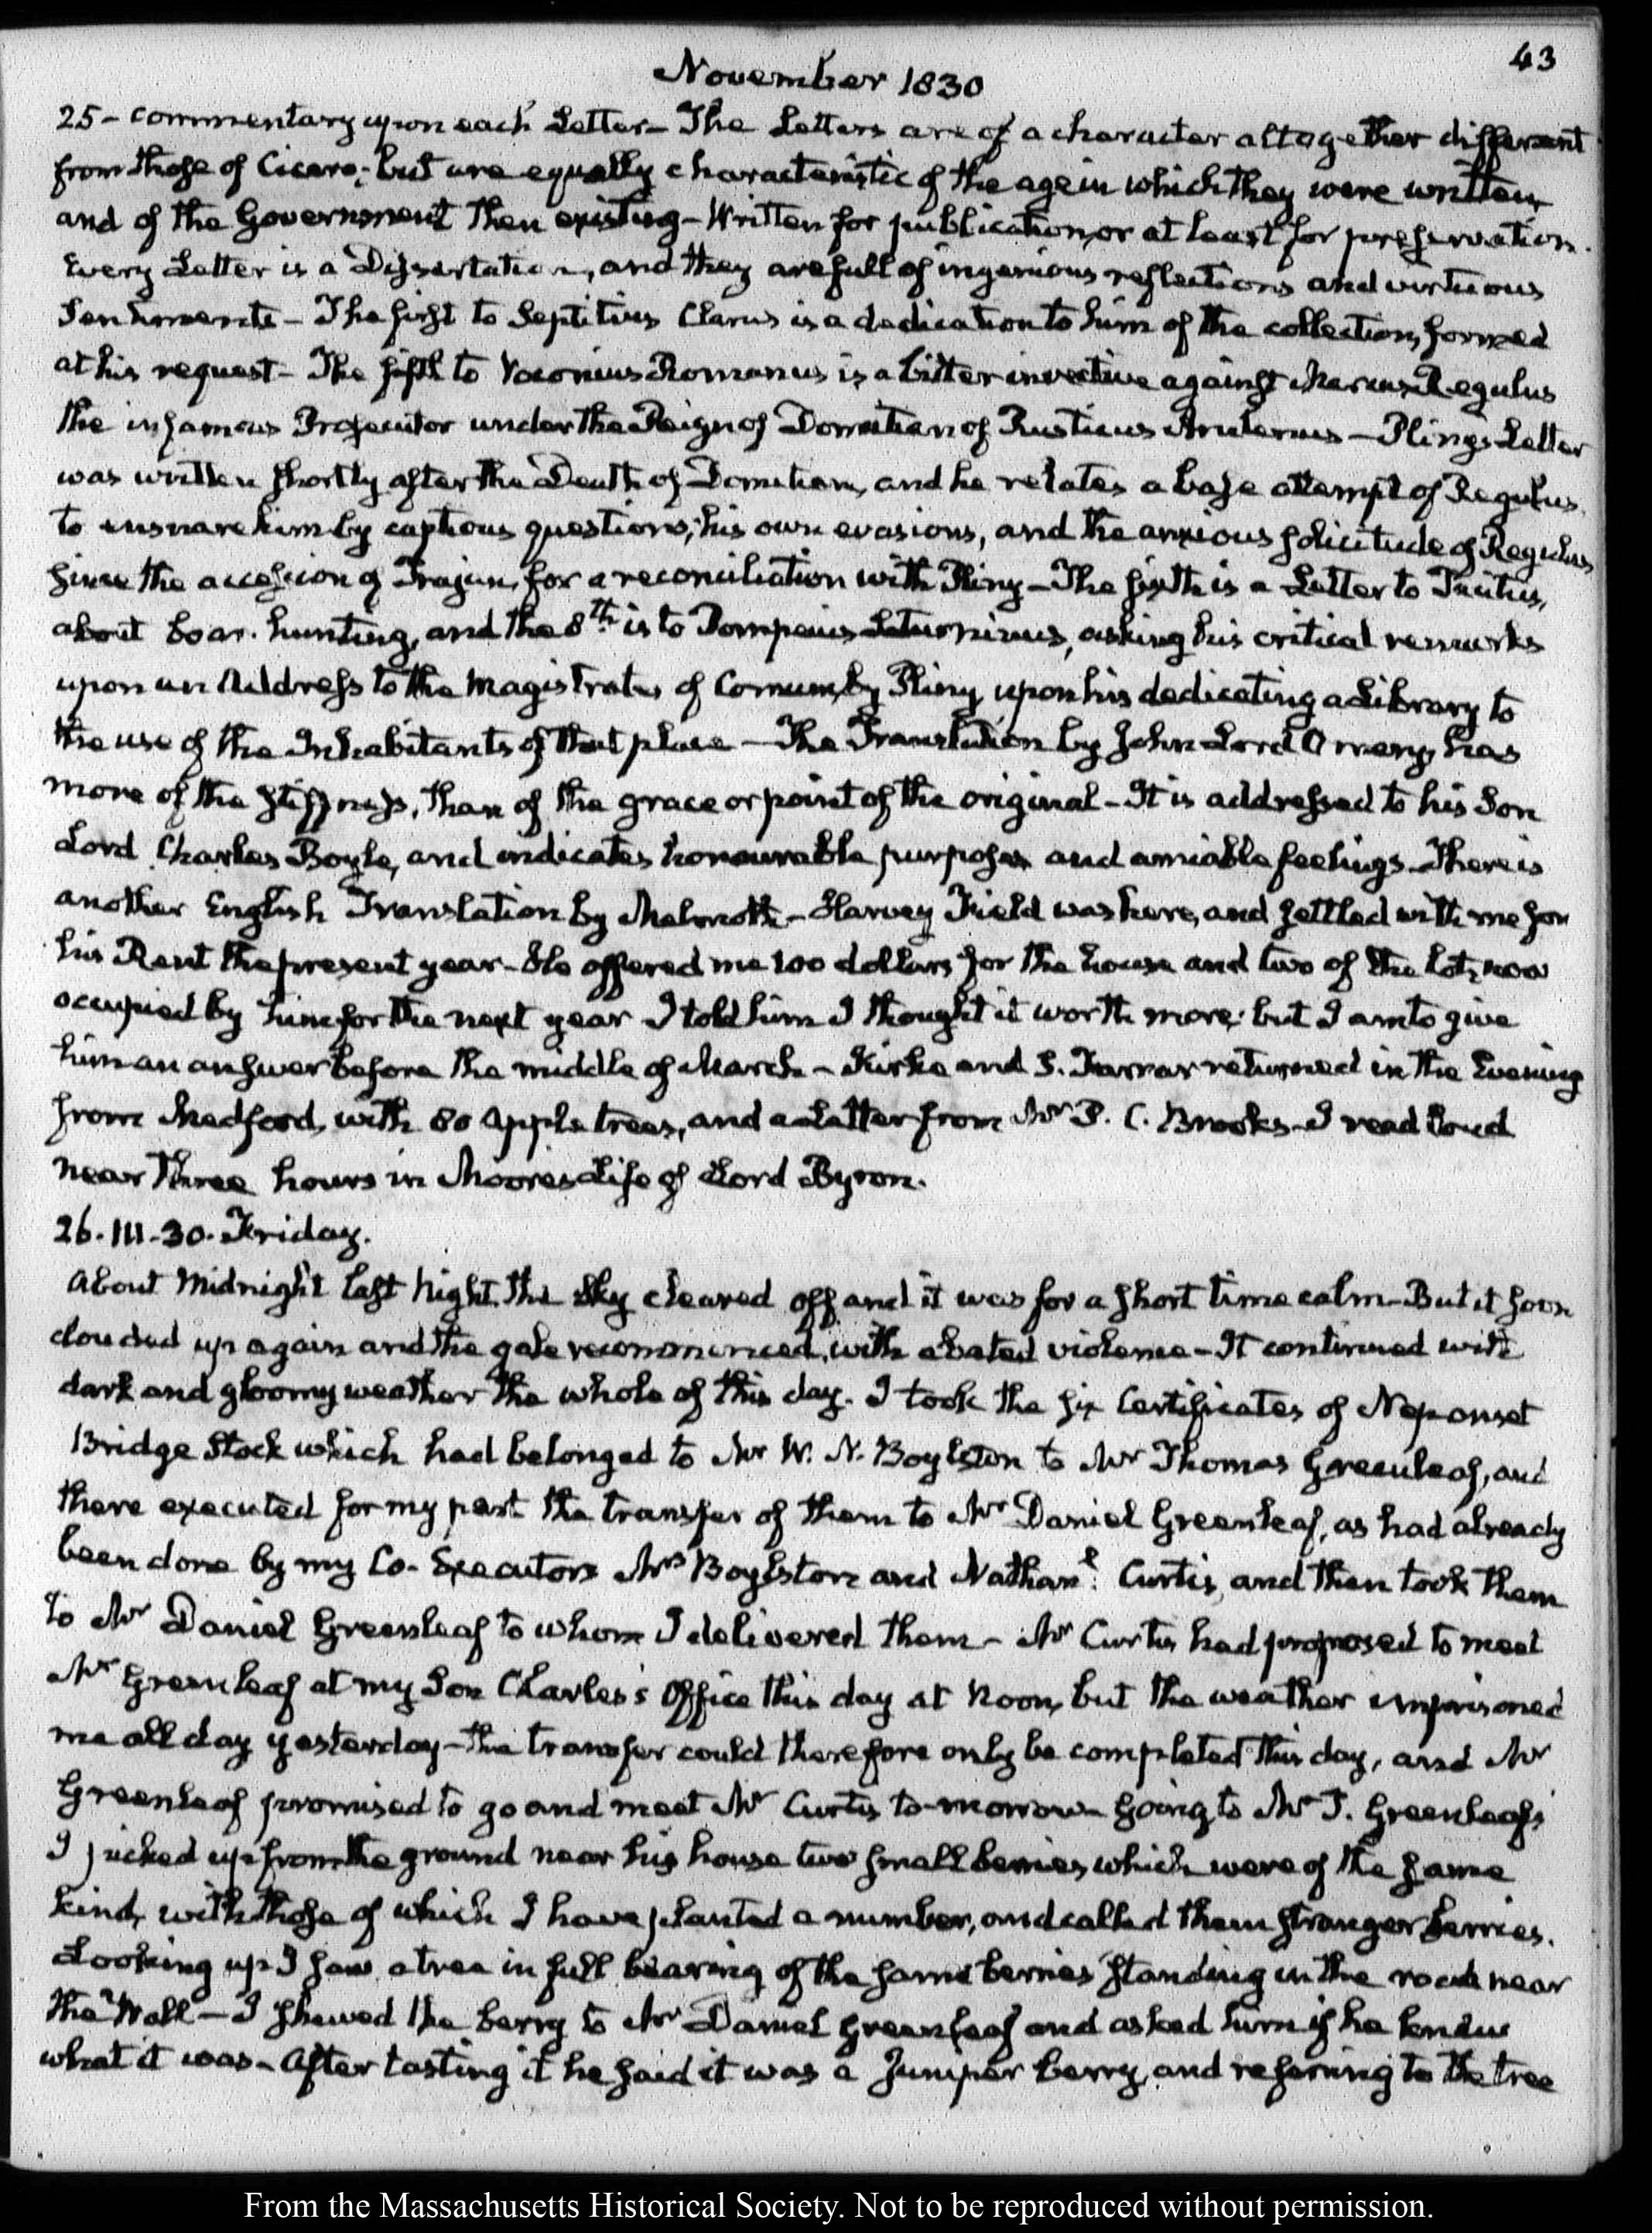 43
November 1830
25 - commentary upon each Letter - The Letters are of a character altogether different
from those of Cicero; but are equally characteristic of the age in which they were written
and of the Government then existing - Written for publication, or at least for preservation.
Every Letter is a Dissertation, and they are full of ingenious reflections and virtuous
Sentiments - The first to Septitius Clarus is a dedication to him of the collection, formed
at his request - The fifth to Voconius Romanus is a bitter invective against Marcus Regulus
the infamous Prosecutor under the Reign of Domitian of Rusticus Arulenus - Pliny's Letter
was written shortly after the Death of Domitian, and he relates a base attempt of Regulus,
to ensnare him by captious questions; his own evasions, and the anxious solicitude of Regulus,
since the accession of Trajan, for a reconciliation with Pliny - The sixth is a Letter to Tacitus,
about boar-hunting, and the 8th is to Pompeius Saturninus, asking his critical remarks
upon an Address to the Magistrates of Comum, by Pliny, upon his dedicating a Library to
the use of the Inhabitants of that place - The Translation by John Lord Orrery, has
more of the stiffness, than of the grace or point of the original - It is addressed to his Son
Lord Charles Boyle, and indicates honourable purposes and amiable feelings. There is
another English Translation by Melmoth - Harvey Field was here, and settled with me for
his Rent the present year - He offered me 100 dollars for the house and two of the lots now
occupied by him for the next year I told him I thought it worth more; but I am to give
him an answer before the middle of March - Kirke and S. Farrar returned in the Evening
from Medford, with 80 Apple trees, and a Letter from Mr P. C. Brooks - I read loud
near three hours in Moore's Life of Lord Byron.
26. III-30. Friday.
About Midnight last Night, the sky cleared off and it was for a short time calm - But it soon
clouded up again and the gale recommenced, with abated violence - It continued with
dark and gloomy weather the whole of this day. I took the six Certificates of Neponset
Bridge Stock which had belonged to Mr W. N. Boylston to Mr Thomas Greenleaf, and
there executed for my part the transfer of them to Mr Daniel Greenleaf, as had already
been done by my Co-Executors Mrs Boylston and Nathanl. Curtis, and then took them
to Mr Daniel Greenleaf to whom I delivered them - Mr Curtis had proposed to meet
Mr Greenleaf at my Son Charles's Office this day at Noon, but the weather imprisoned
me all day yesterday - the transfer could therefore only be completed this day, and Mr
Greenleaf promised to go and meet Mr Curtis to-morrow - Going to Mr T. Greenleaf's
I picked up from the ground near his house two small berries, which were of the same
kind, with those of which I have planted a number, and called them stranger berries.
Looking up I saw a tree in full bearing of the same berries standing in the road near
the Wall - I shewed the berry to Mr Daniel Greenleaf and asked him if he knew
what it was - After tasting it he said it was a Juniper berry, and referring to the tree
From the Massachusetts Historical Society. Not to be reproduced without permission.